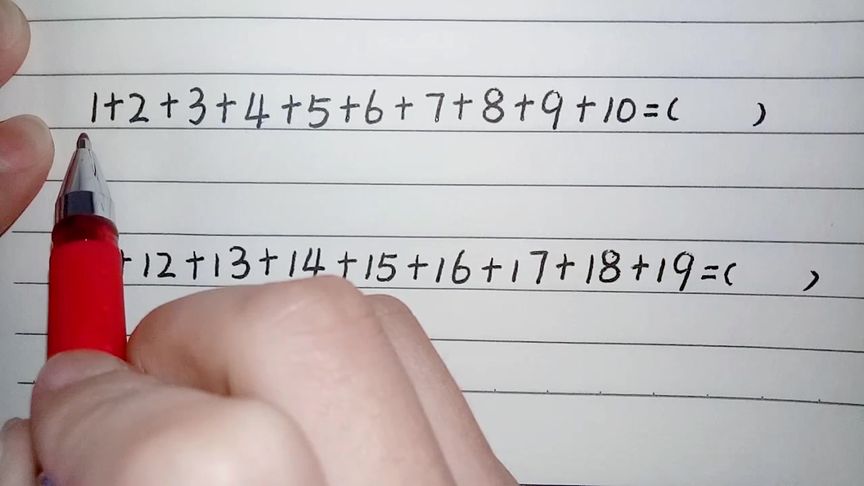 1+2+3+4+5+6+7+8+9+10=(  )
+12+13+14+15+16+17+18+19=(  )